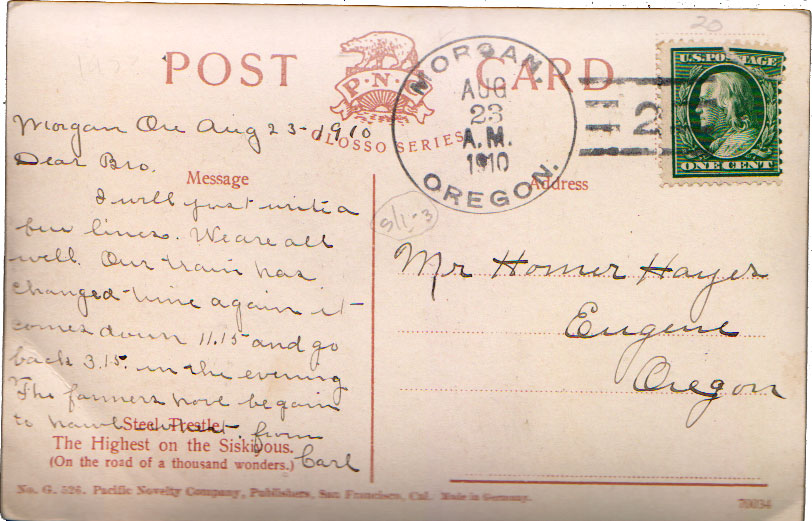 20
POST CARD
P·N·C
GLOSSO SERIES
MORGAN.
AUG
23
A.M.
1910
OREGON.
2
U.S. POSTAGE
ONE CENT
Morgan Ore Aug 23-1910
Dear Bro.
Message
I will just write a
few lines. We are all
well. Our train has
changed time again it
comes down 11.15 and go
back 3.15. in the evening
The farmers have begain
to hawl wheat. from
Carl
Address
S/1-3
Mr Homer Hayes
Eugene
Oregon
Steel Trestle
The Highest on the Siskiyous.
(On the road of a thousand wonders.)
No. G. 526. Pacific Novelty Company, Publishers, San Francisco, Cal. Made in Germany.
70034